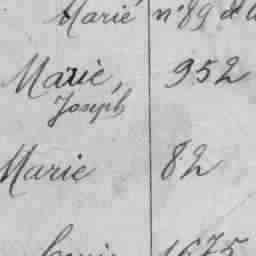 Marie nº 89 d
Marie, 952
Joseph
Marie 82
Louis 1675